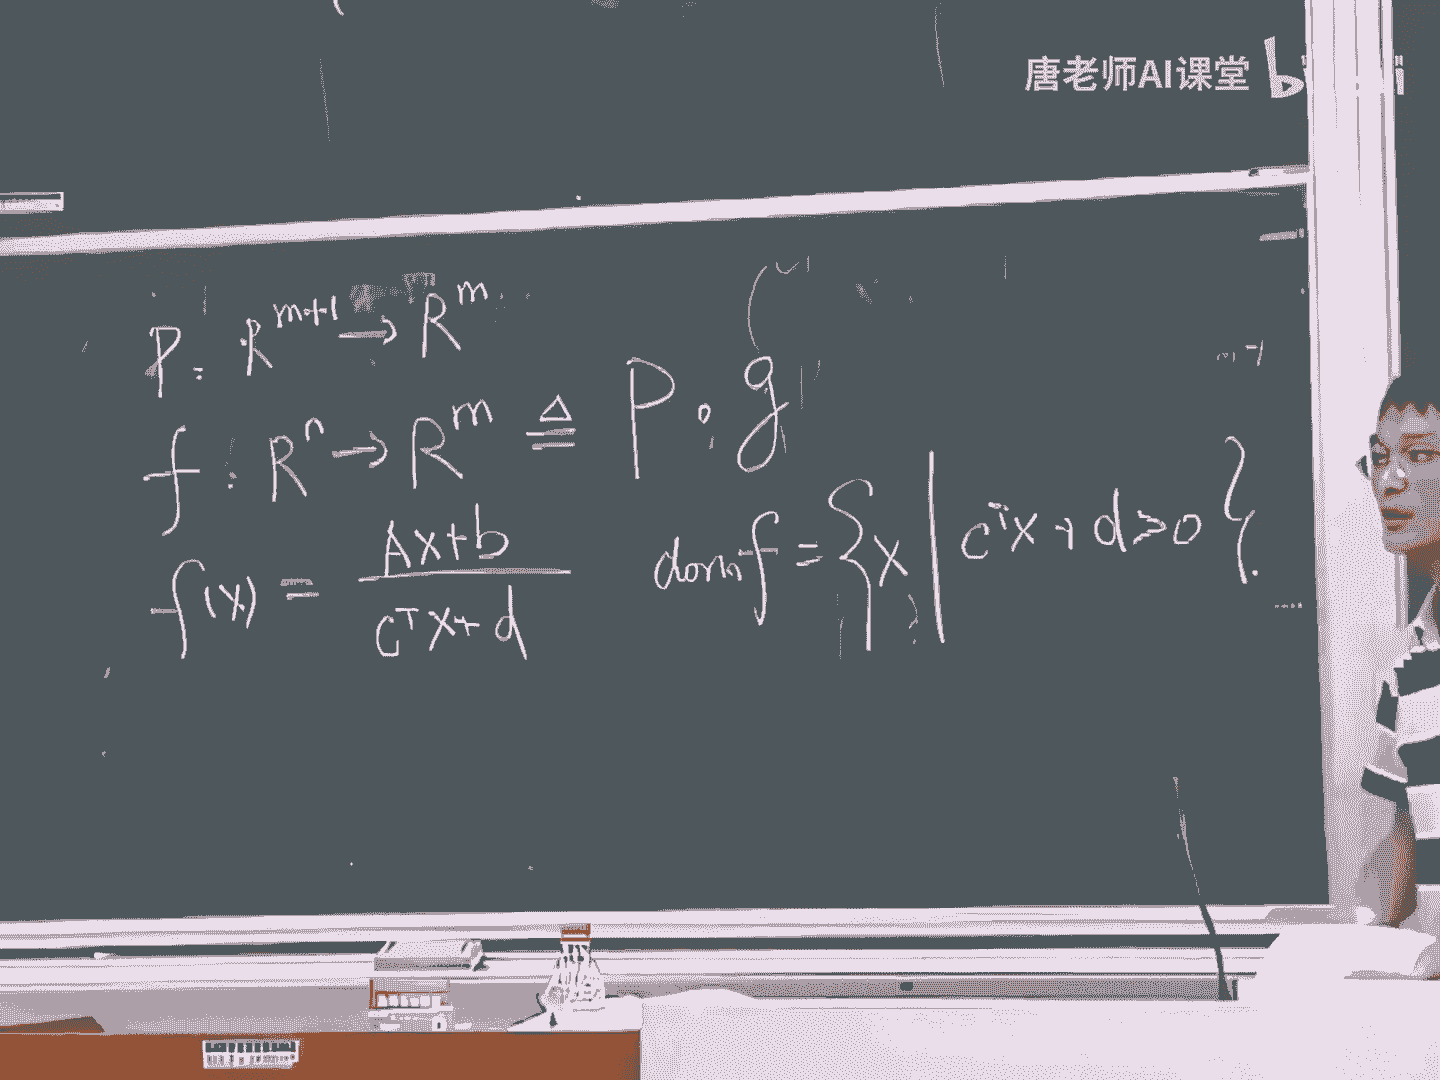 唐老师AI课堂 b
P: R^{m+1} → R^m
f: R^n → R^m ≜ P∘g
f(x) = \frac{Ax+b}{c^T x+d} dom f = {x | c^T x + d > 0}.